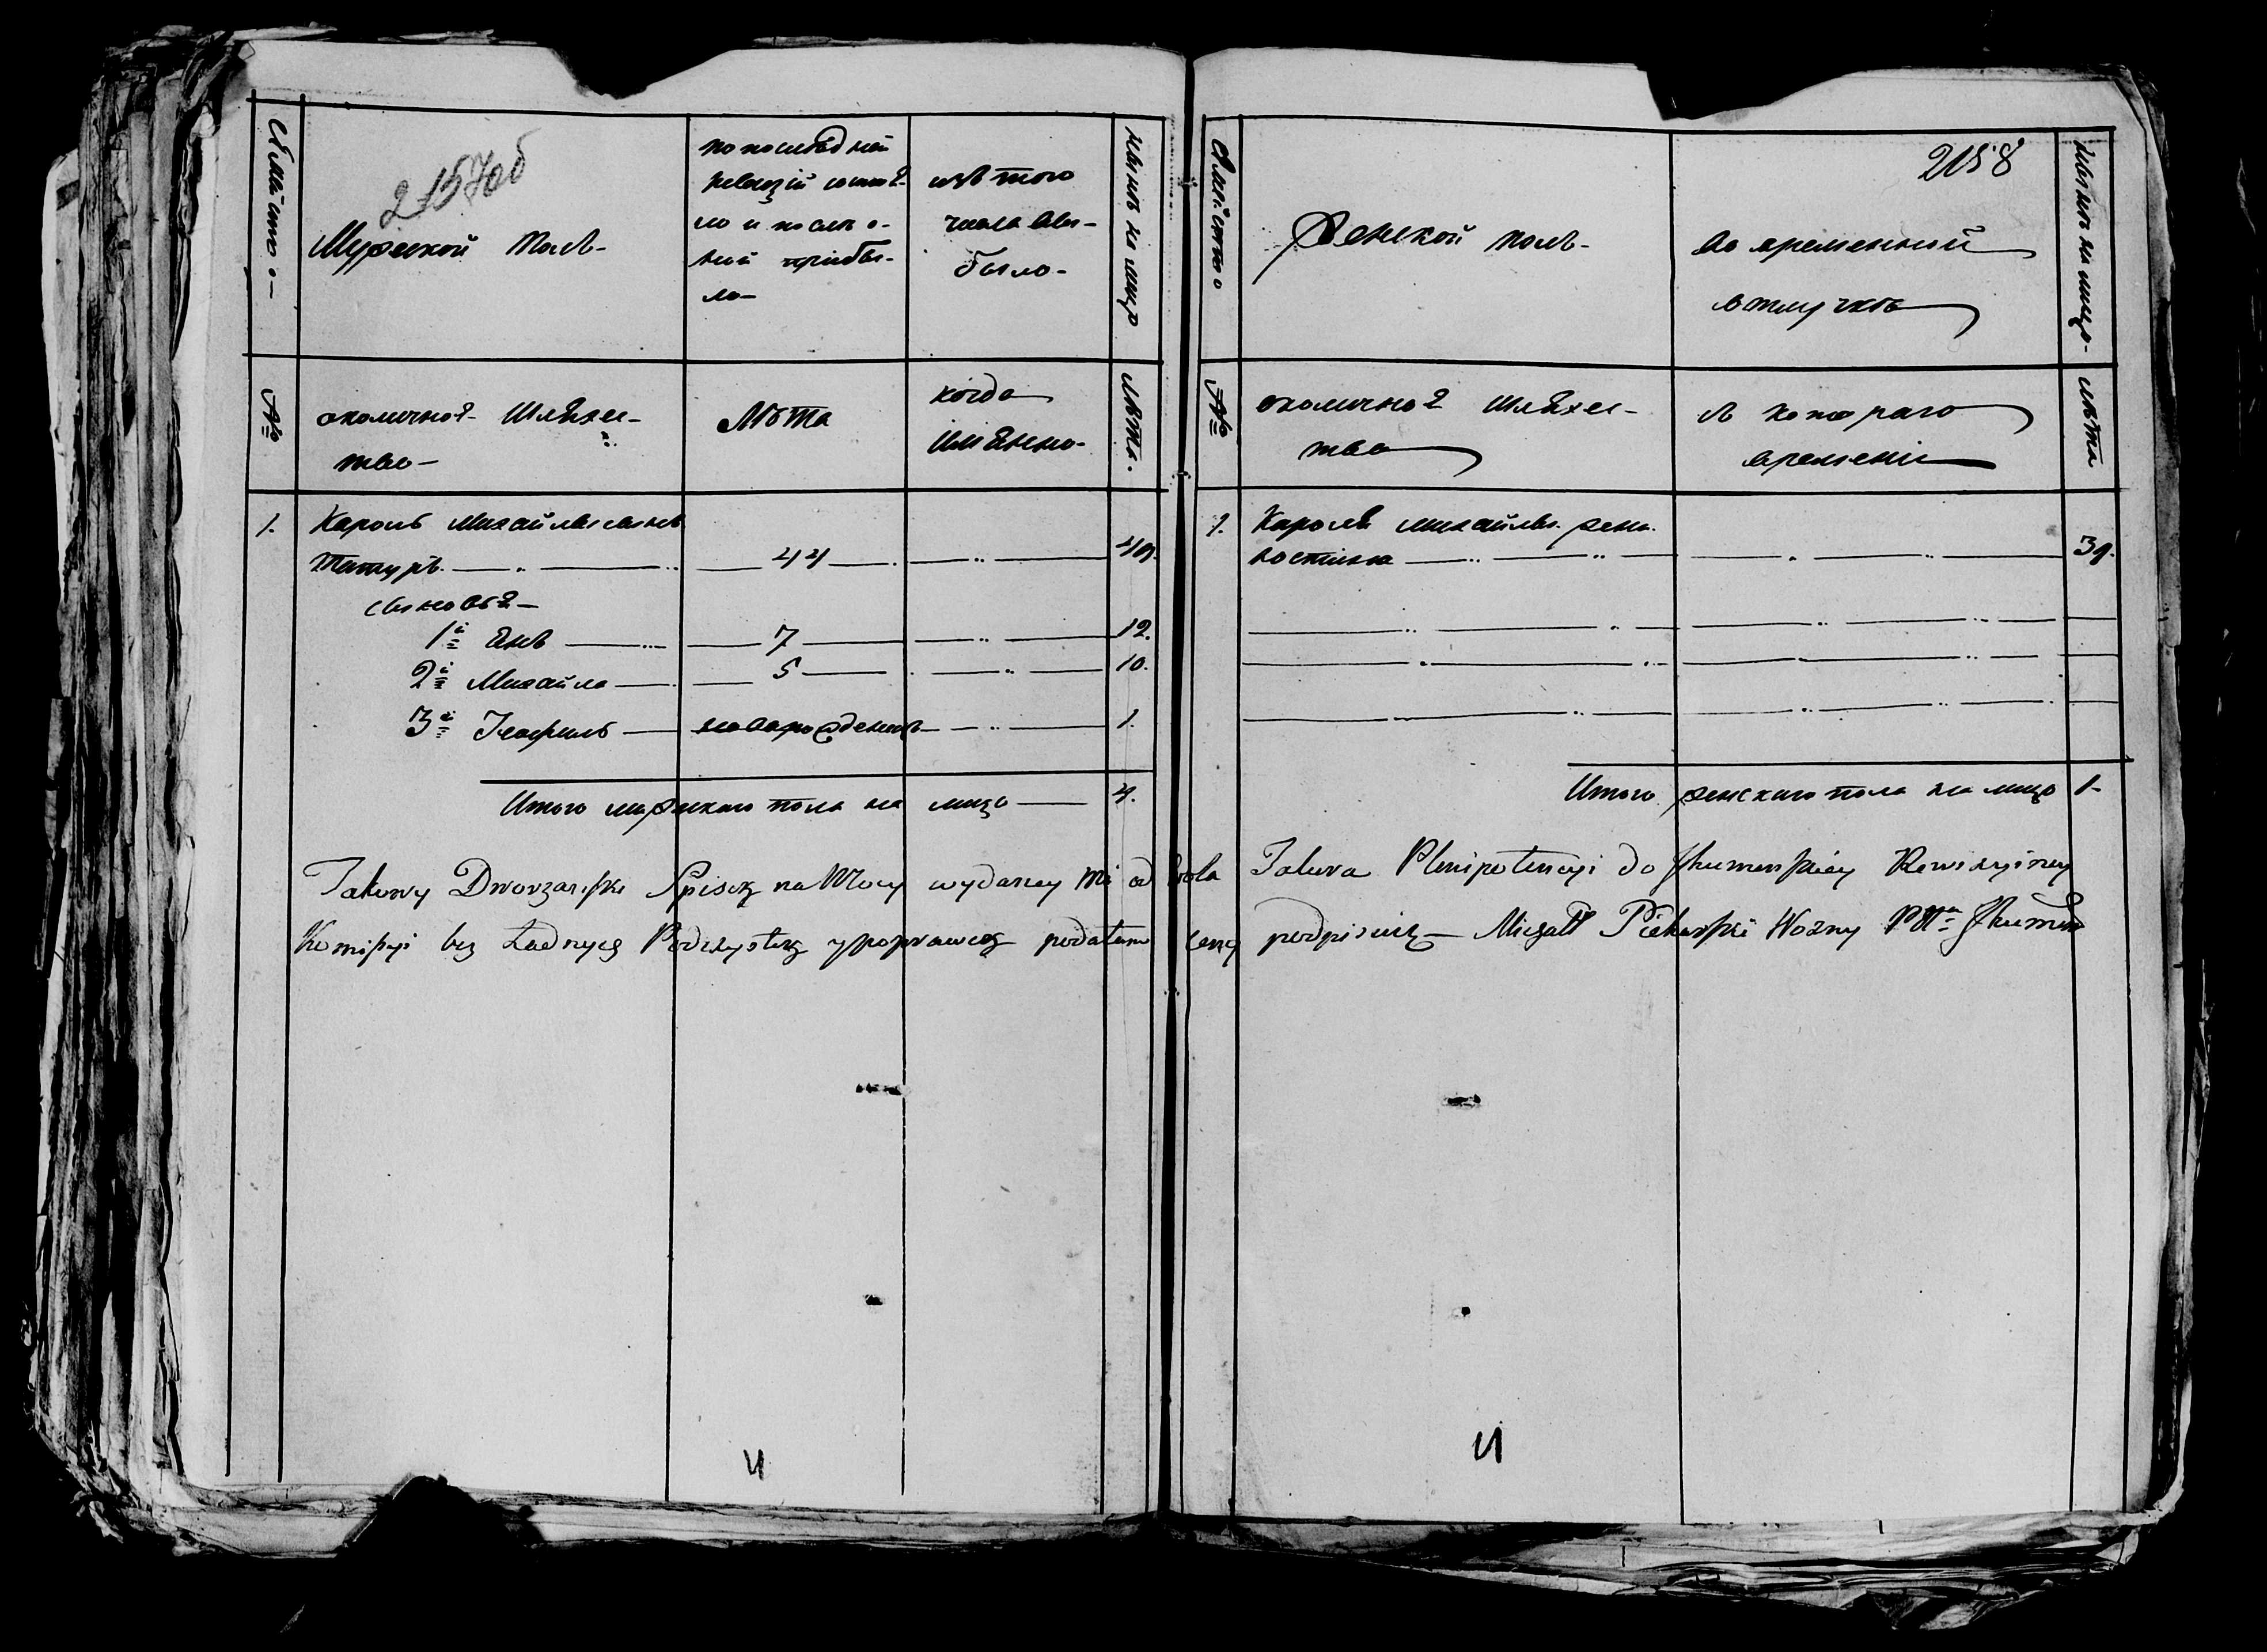 2157об
Семейство
Мужеской полъ
по последней
ревизіи состоя-
ло и после о-
ной прибы-
ло
изъ того
числа вы-
было
нынѣ на лицо
№
околичной Шляхес-
тво
Лѣта
когда
именно
Лѣта
1. Кароль Михайлы сынъ
Татуръ 44 49.
сыновья
1й Янъ 7 12.
2й Михайла 5 10.
3й Теофиль новорожденъ 1.
Итого мужескаго пола на лицо 4.
2158
Семейство
Женской полъ
во временной
отлучке
нынѣ на лицо
№
околичной Шляхес-
тва
съ котораго
времени
Лѣта
1. Кароля Михайлы. жена
39.
Итого женскаго пола на лицо 1
Takowy Dworzański Spisek na Mocy wydaney mi od Karola Tatura Plenipotencyi do Jhumenskiey Rewizyiney
Komissyi bez żadnych Podczystek y poprawek podatem cenę podpisuię Michał Piekarski Wozny Pttu Jhumen
И
И